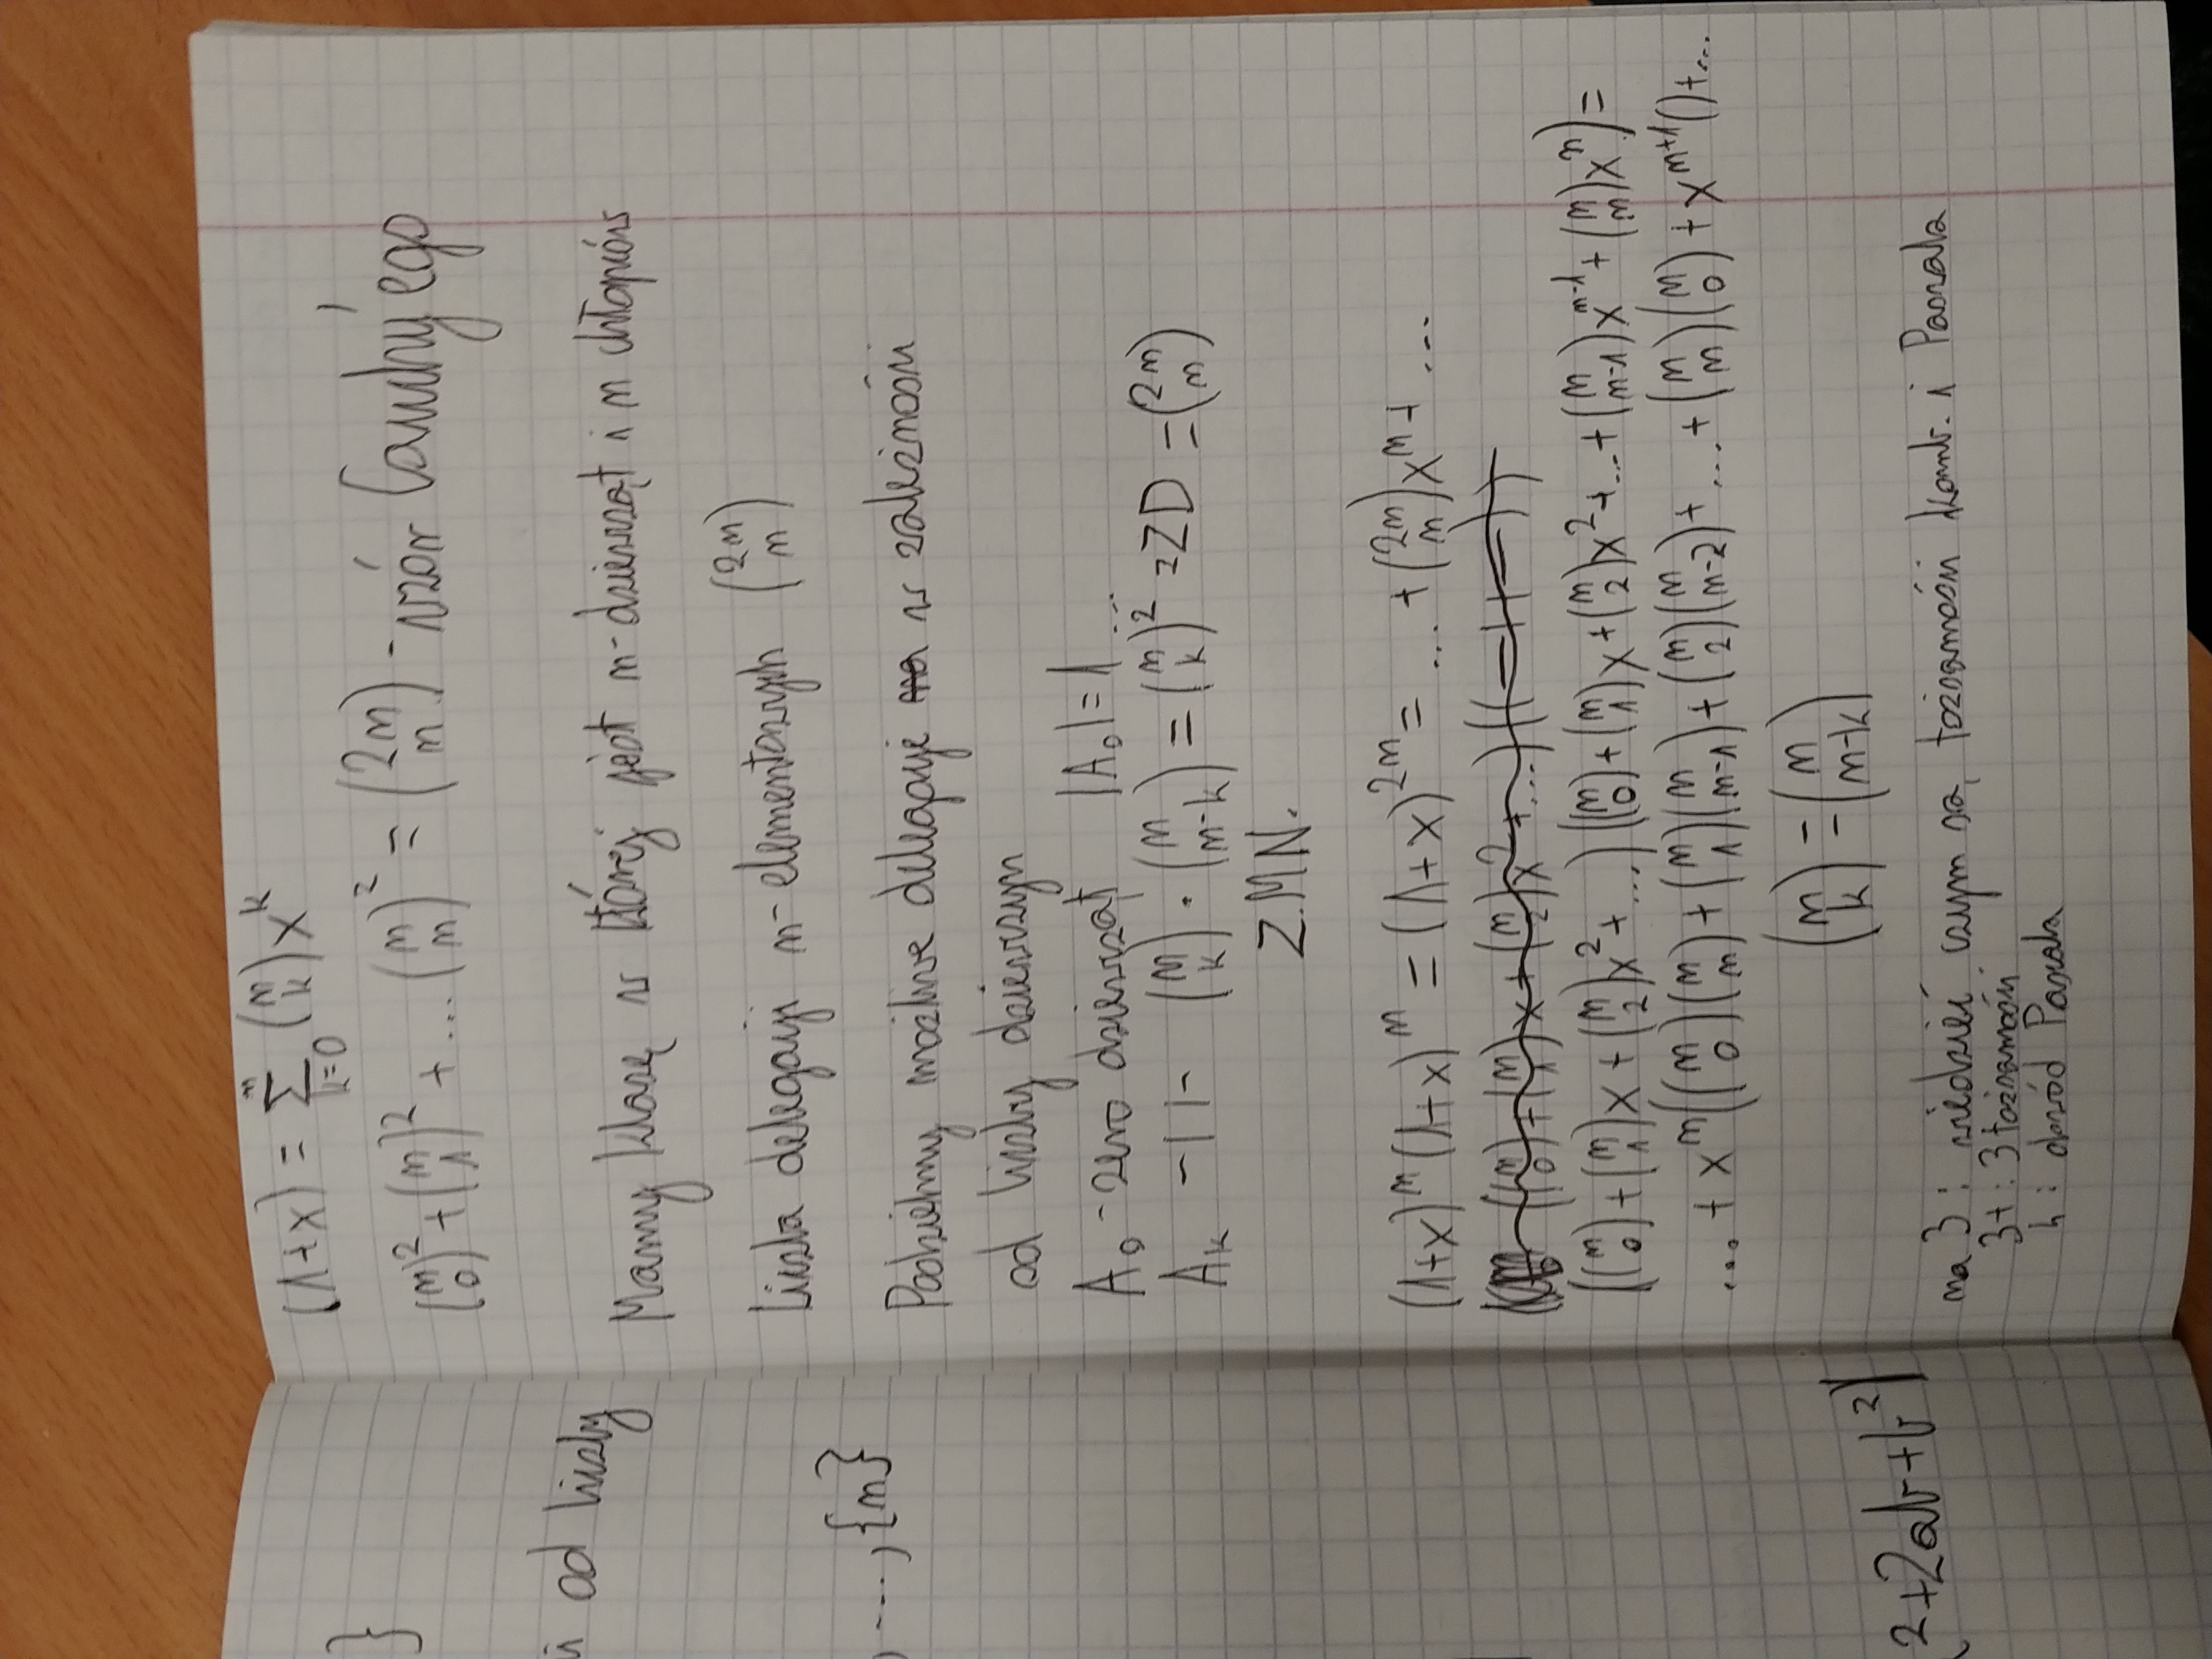 }
od liczby
, ..., {n}
2+2ab+b²)
(1+x) = \sum_{k=0}^{n} \binom{n}{k} x^k
\binom{n}{0}^2 + \binom{n}{1}^2 + ... \binom{n}{n}^2 = \binom{2n}{n} - wzór Cauchy'ego
Mamy klasę w której jest n-dziewcząt i n chłopców
Liczba delegacji n-elementowych \binom{2n}{n}
Podzielmy możliwe delegacje w zależności
od liczby dziewczyn
A_0 - zero dziewcząt |A_0| = 1 ...
A_k -||- \binom{n}{k} · \binom{n}{n-k} = \binom{n}{k}^2 = ZD = \binom{2n}{n}
Z.M.N.
(1+x)^n (1+x)^n = (1+x)^{2n} = ... + \binom{2n}{n} x^n + ...
(\binom{n}{0} + \binom{n}{1}x + \binom{n}{2}x^2 + ...)((-||-))
(\binom{n}{0} + \binom{n}{1}x + \binom{n}{2}x^2 + ...)(\binom{n}{0} + \binom{n}{1}x + \binom{n}{2}x^2 + ... + \binom{n}{n-1}x^{n-1} + \binom{n}{n}x^n) =
... + x^n(\binom{n}{0}\binom{n}{n} + \binom{n}{1}\binom{n}{n-1} + \binom{n}{2}\binom{n}{n-2} + ... + \binom{n}{n}\binom{n}{0} + x^{n+1}() + ...
\binom{n}{k} = \binom{n}{n-k}
na 3: wiedzieć czym są tożsamości komb. i Pascala
3+: 3 tożsamości
4: dowód Pascala